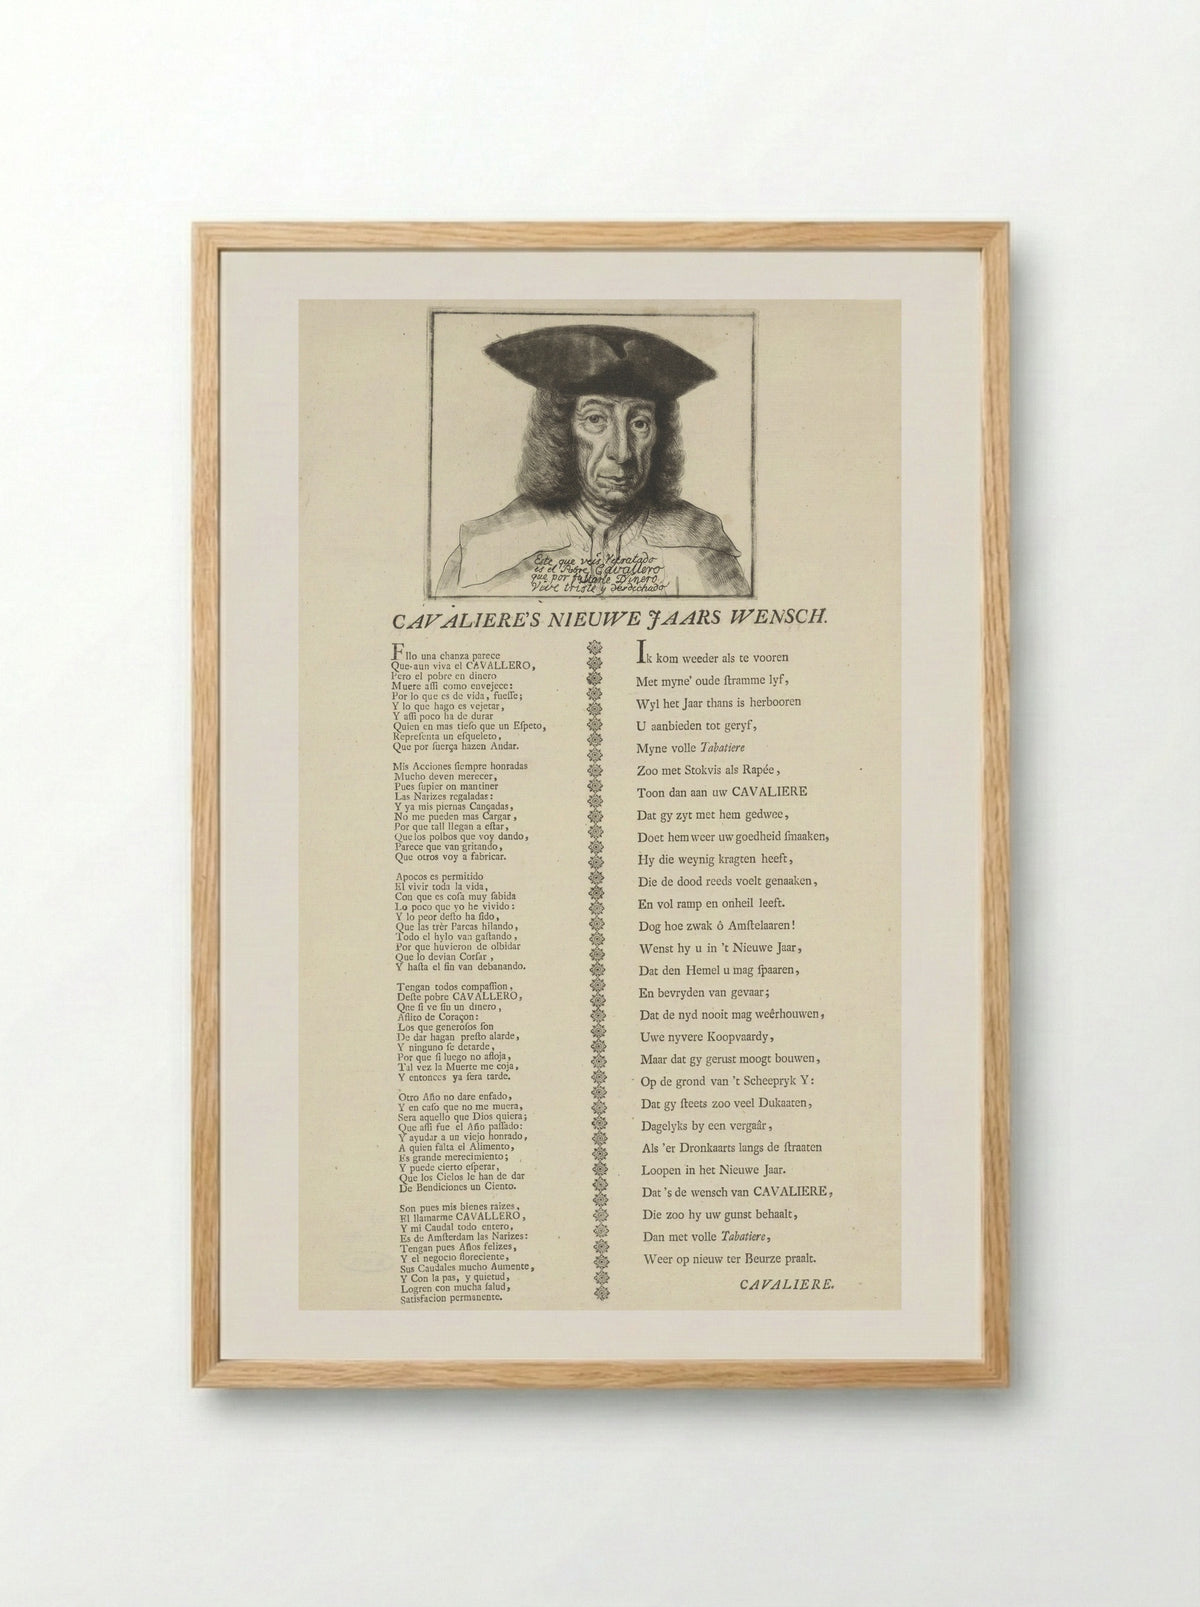 Este que veis Retratado
es el Pobre Cavallero
que por faltarle Dinero
Vive triste y desdichado
CAVALIERE'S NIEUWE JAARS WENSCH.
Ello una chanza parece
Que-aun viva el CAVALLERO,
Pero el pobre en dinero
Muere aſſi como envejece:
Por lo que es de vida, fueſſe;
Y lo que hago es vejetar,
Y aſſi poco ha de durar
Quien en mas tieſo que un Eſpeto,
Repreſenta un eſqueleto,
Que por fuerça hazen Andar.
Mis Acciones ſiempre honradas
Mucho deven merecer,
Pues ſupier on mantiner
Las Narizes regaladas:
Y ya mis piernas Cançadas,
No me pueden mas Cargar,
Por que tall llegan a eſtar,
Que los polbos que voy dando,
Parece que van gritando,
Que otros voy a fabricar.
Apocos es permitido
El vivir toda la vida,
Con que es coſa muy ſabida
Lo poco que yo he vivido:
Y lo peor deſto ha ſido,
Que las trèr Parcas hilando,
Todo el hylo van gaſtando,
Por que huvieron de olbidar
Que lo devian Corſar,
Y haſta el fin van debanando.
Tengan todos compaſſion,
Deſte pobre CAVALLERO,
Que ſi ve ſin un dinero,
Aflito de Coraçon:
Los que generoſos ſon
De dar hagan preſto alarde,
Y ninguno ſe detarde,
Por que ſi luego no afloja,
Tal vez la Muerte me coja,
Y entonces ya ſera tarde.
Otro Año no dare enfado,
Y en caſo que no me muera,
Sera aquello que Dios quiera;
Que aſſi fue el Año paſſado:
Y ayudar a un viejo honrado,
A quien falta el Alimento,
Es grande merecimiento;
Y puede cierto eſperar,
Que los Cielos le han de dar
De Bendiciones un Ciento.
Son pues mis bienes raizes,
El llamarme CAVALLERO,
Y mi Caudal todo entero,
Es de Amſterdam las Narizes:
Tengan pues Años felizes,
Y el negocio floreciente,
Sus Caudales mucho Aumente,
Y Con la pas, y quietud,
Logren con mucha ſalud,
Satisfacion permanente.
Ik kom weeder als te vooren
Met myne' oude ſtramme lyf,
Wyl het Jaar thans is herbooren
U aanbieden tot geryf,
Myne volle Tabatiere
Zoo met Stokvis als Rapée,
Toon dan aan uw CAVALIERE
Dat gy zyt met hem gedwee,
Doet hem weer uw goedheid ſmaaken,
Hy die weynig kragten heeft,
Die de dood reeds voelt genaaken,
En vol ramp en onheil leeft.
Dog hoe zwak ô Amſtelaaren!
Wenst hy u in 't Nieuwe Jaar,
Dat den Hemel u mag ſpaaren,
En bevryden van gevaar;
Dat de nyd nooit mag weêrhouwen,
Uwe nyvere Koopvaardy,
Maar dat gy gerust moogt bouwen,
Op de grond van 't Scheepryk Y:
Dat gy ſteets zoo veel Dukaaten,
Dagelyks by een vergaâr,
Als 'er Dronkaarts langs de ſtraaten
Loopen in het Nieuwe Jaar.
Dat 's de wensch van CAVALIERE,
Die zoo hy uw gunst behaalt,
Dan met volle Tabatiere,
Weer op nieuw ter Beurze praalt.
CAVALIERE.